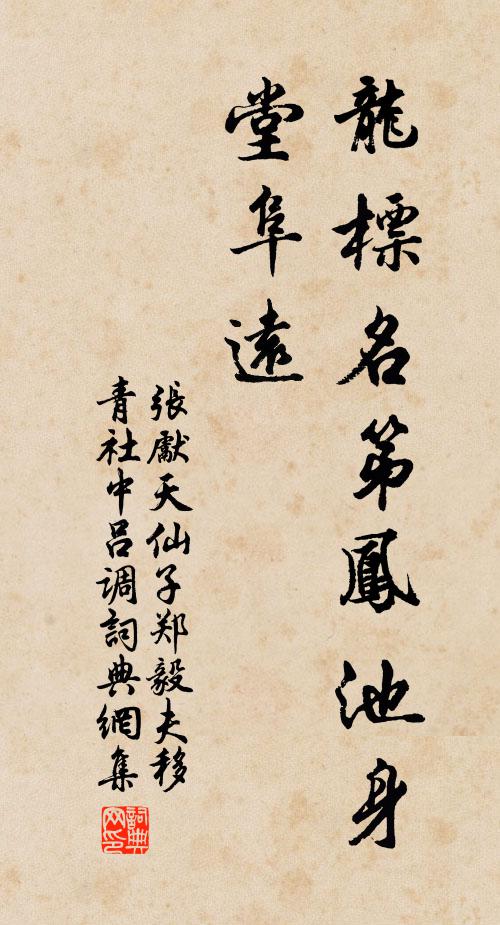 龍標名第鳳池身
堂阜遠
張獻天仙子郑毅夫移
青社中吕调詞典網集
詞典网印